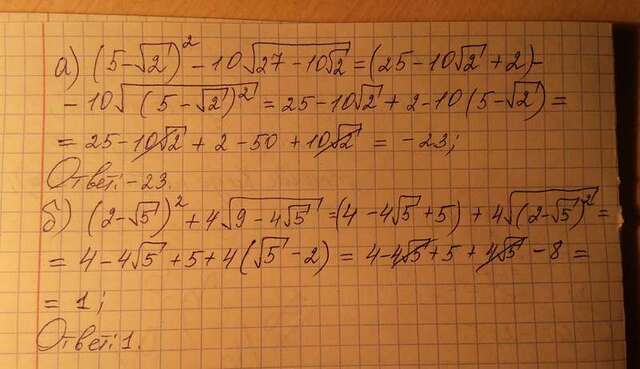 а) (5-√2)² - 10√(27-10√2) = (25-10√2+2)-
- 10√((5-√2)²) = 25-10√2+2-10(5-√2) =
= 25-10√2+2-50+10√2 = -23;
Ответ: -23.
б) (2-√5)² + 4√(9-4√5) = (4-4√5+5) + 4√((2-√5)²) =
= 4-4√5+5+4(√5-2) = 4-4√5+5+4√5-8 =
= 1;
Ответ: 1.